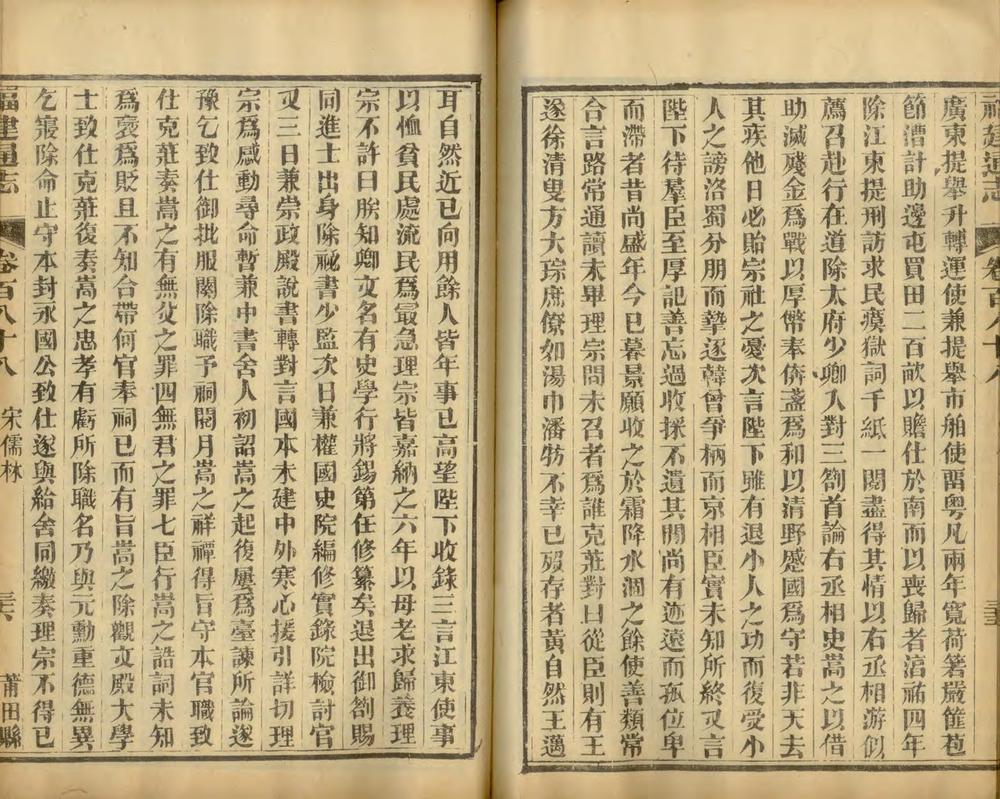 福建通志
卷百八十八
三五
廣東提舉升轉運使兼提舉市舶使畱粤凡兩年寬荷箬嚴篚苞
節漕計助邊屯買田二百畝以贍仕於南而以喪歸者淳祐四年
除江東提刑訪求民瘼獄詞千紙一閱盡得其情以右丞相游似
薦召赴行在道除太府少卿入對三劄首論右丞相史嵩之以借
助滅殘金爲戰以厚幣奉儕盞爲和以清野蹙國爲守若非天去
其疾他日必貽宗社之憂次言陛下雖有退小人之功而復受小
人之謗洛蜀分朋而摯逐韓曾爭柄而京相臣實未知所終又言
陛下待羣臣至厚記善忘過收採不遺其閒尚有迹遠而孤位卑
而滯者昔尚盛年今已暮景願收之於霜降水涸之餘使善類常
合言路常通讀未畢理宗問未召者爲誰克莊對曰從臣則有王
遂徐清叟方大琮庶僚如湯巾潘牥不幸已歿存者黃自然王邁
耳自然近已向用餘人皆年事已高望陛下收錄三言江東使事
以恤貧民處流民爲最急理宗皆嘉納之六年以母老求歸養理
宗不許曰朕知卿文名有史學行將錫第任修纂矣退出御劄賜
同進士出身除祕書少監次日兼權國史院編修實錄院檢討官
又三日兼崇政殿說書轉對言國本未建中外寒心援引詳切理
宗爲感動尋命暫兼中書舍人初詔嵩之起復屢爲臺諫所論遂
豫乞致仕御批服闋除職予祠閱月嵩之祥禫得旨守本官職致
仕克莊奏嵩之有無父之罪四無君之罪七臣行嵩之誥詞未知
爲褒爲貶且不知合帶何官奉祠已而有旨嵩之除觀文殿大學
士致仕克莊復奏嵩之忠孝有虧所除職名乃與元勳重德無異
乞寢除命止守本封永國公致仕遂與給舍同繳奏理宗不得已
福建通志
卷百八十八
宋儒林
三六
莆田縣